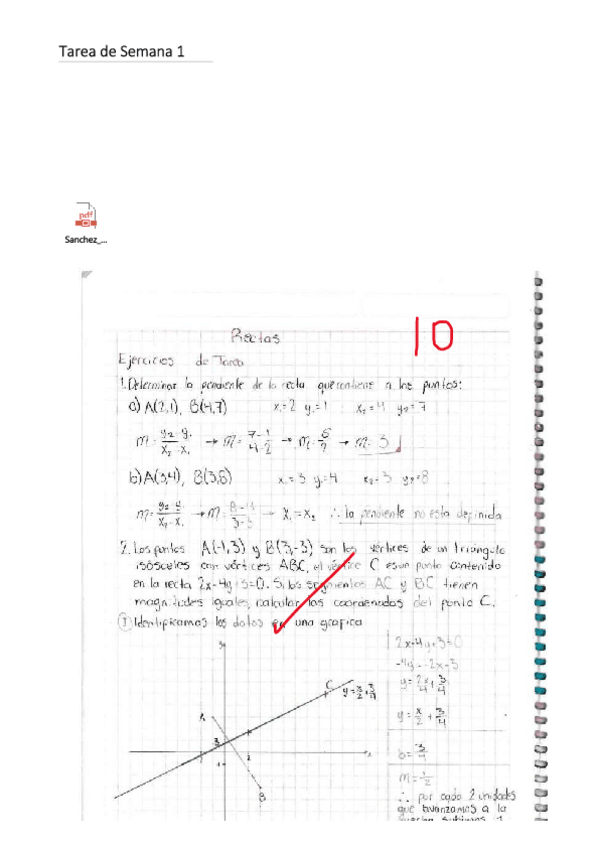 Tarea de Semana 1
pdf
Sanchez_...
10
Rectas
Ejercicios de Tarea
1. Determinar la pendiente de la recta que contiene a los puntos:
a) A(2,1), B(4,7) x₁=2 y₁=1 x₂=4 y₂=7
m= y₂-y₁/x₂-x₁ → m= 7-1/4-2 → m= 6/2 → m= 3
b) A(3,4), B(3,8) x₁=3 y₁=4 x₂=3 y₂=8
m= y₂-y₁/x₂-x₁ → m= 8-4/3-3 → x₁=x₂ ∴ la pendiente no esta definida
2. Los puntos A(-1,3) y B(3,-3) son los vértices de un triangulo
isósceles con vértices ABC, el vértice C es un punto contenido
en la recta 2x-4y+3=0. Si los segmentos AC y BC tienen
magnitudes iguales, calcular las coordenadas del punto C.
① Identificamos los datos en una grafica
2x-4y+3=0
-4y=-2x-3
y= 2x/4 + 3/4
y= x/2 + 3/4
b= 3/4
m= 1/2
∴ por cada 2 unidades
que avanzamos a la
y
C
y= x/2 + 3/4
A
x
B